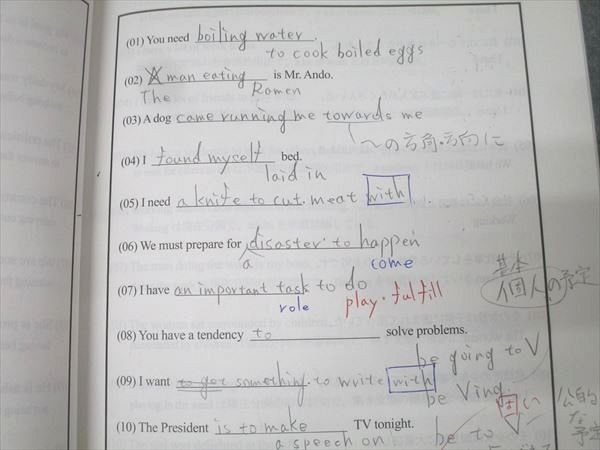 (01) You need boiling water.
to cook boiled eggs
(02) A man eating is Mr. Ando.
The Ramen
(03) A dog came running me towards me
〜の方角・方向に
(04) I found myself bed.
laid in
(05) I need a knife to cut meat with.
(06) We must prepare for disaster to happen
a come
(07) I have an important task to do
role play・fulfill
基本
個人の予定
(08) You have a tendency to solve problems.
be going to V
(09) I want to get something to write with
be Ving.
(10) The President is to make TV tonight.
a speech on
be to V
公的
な
予定